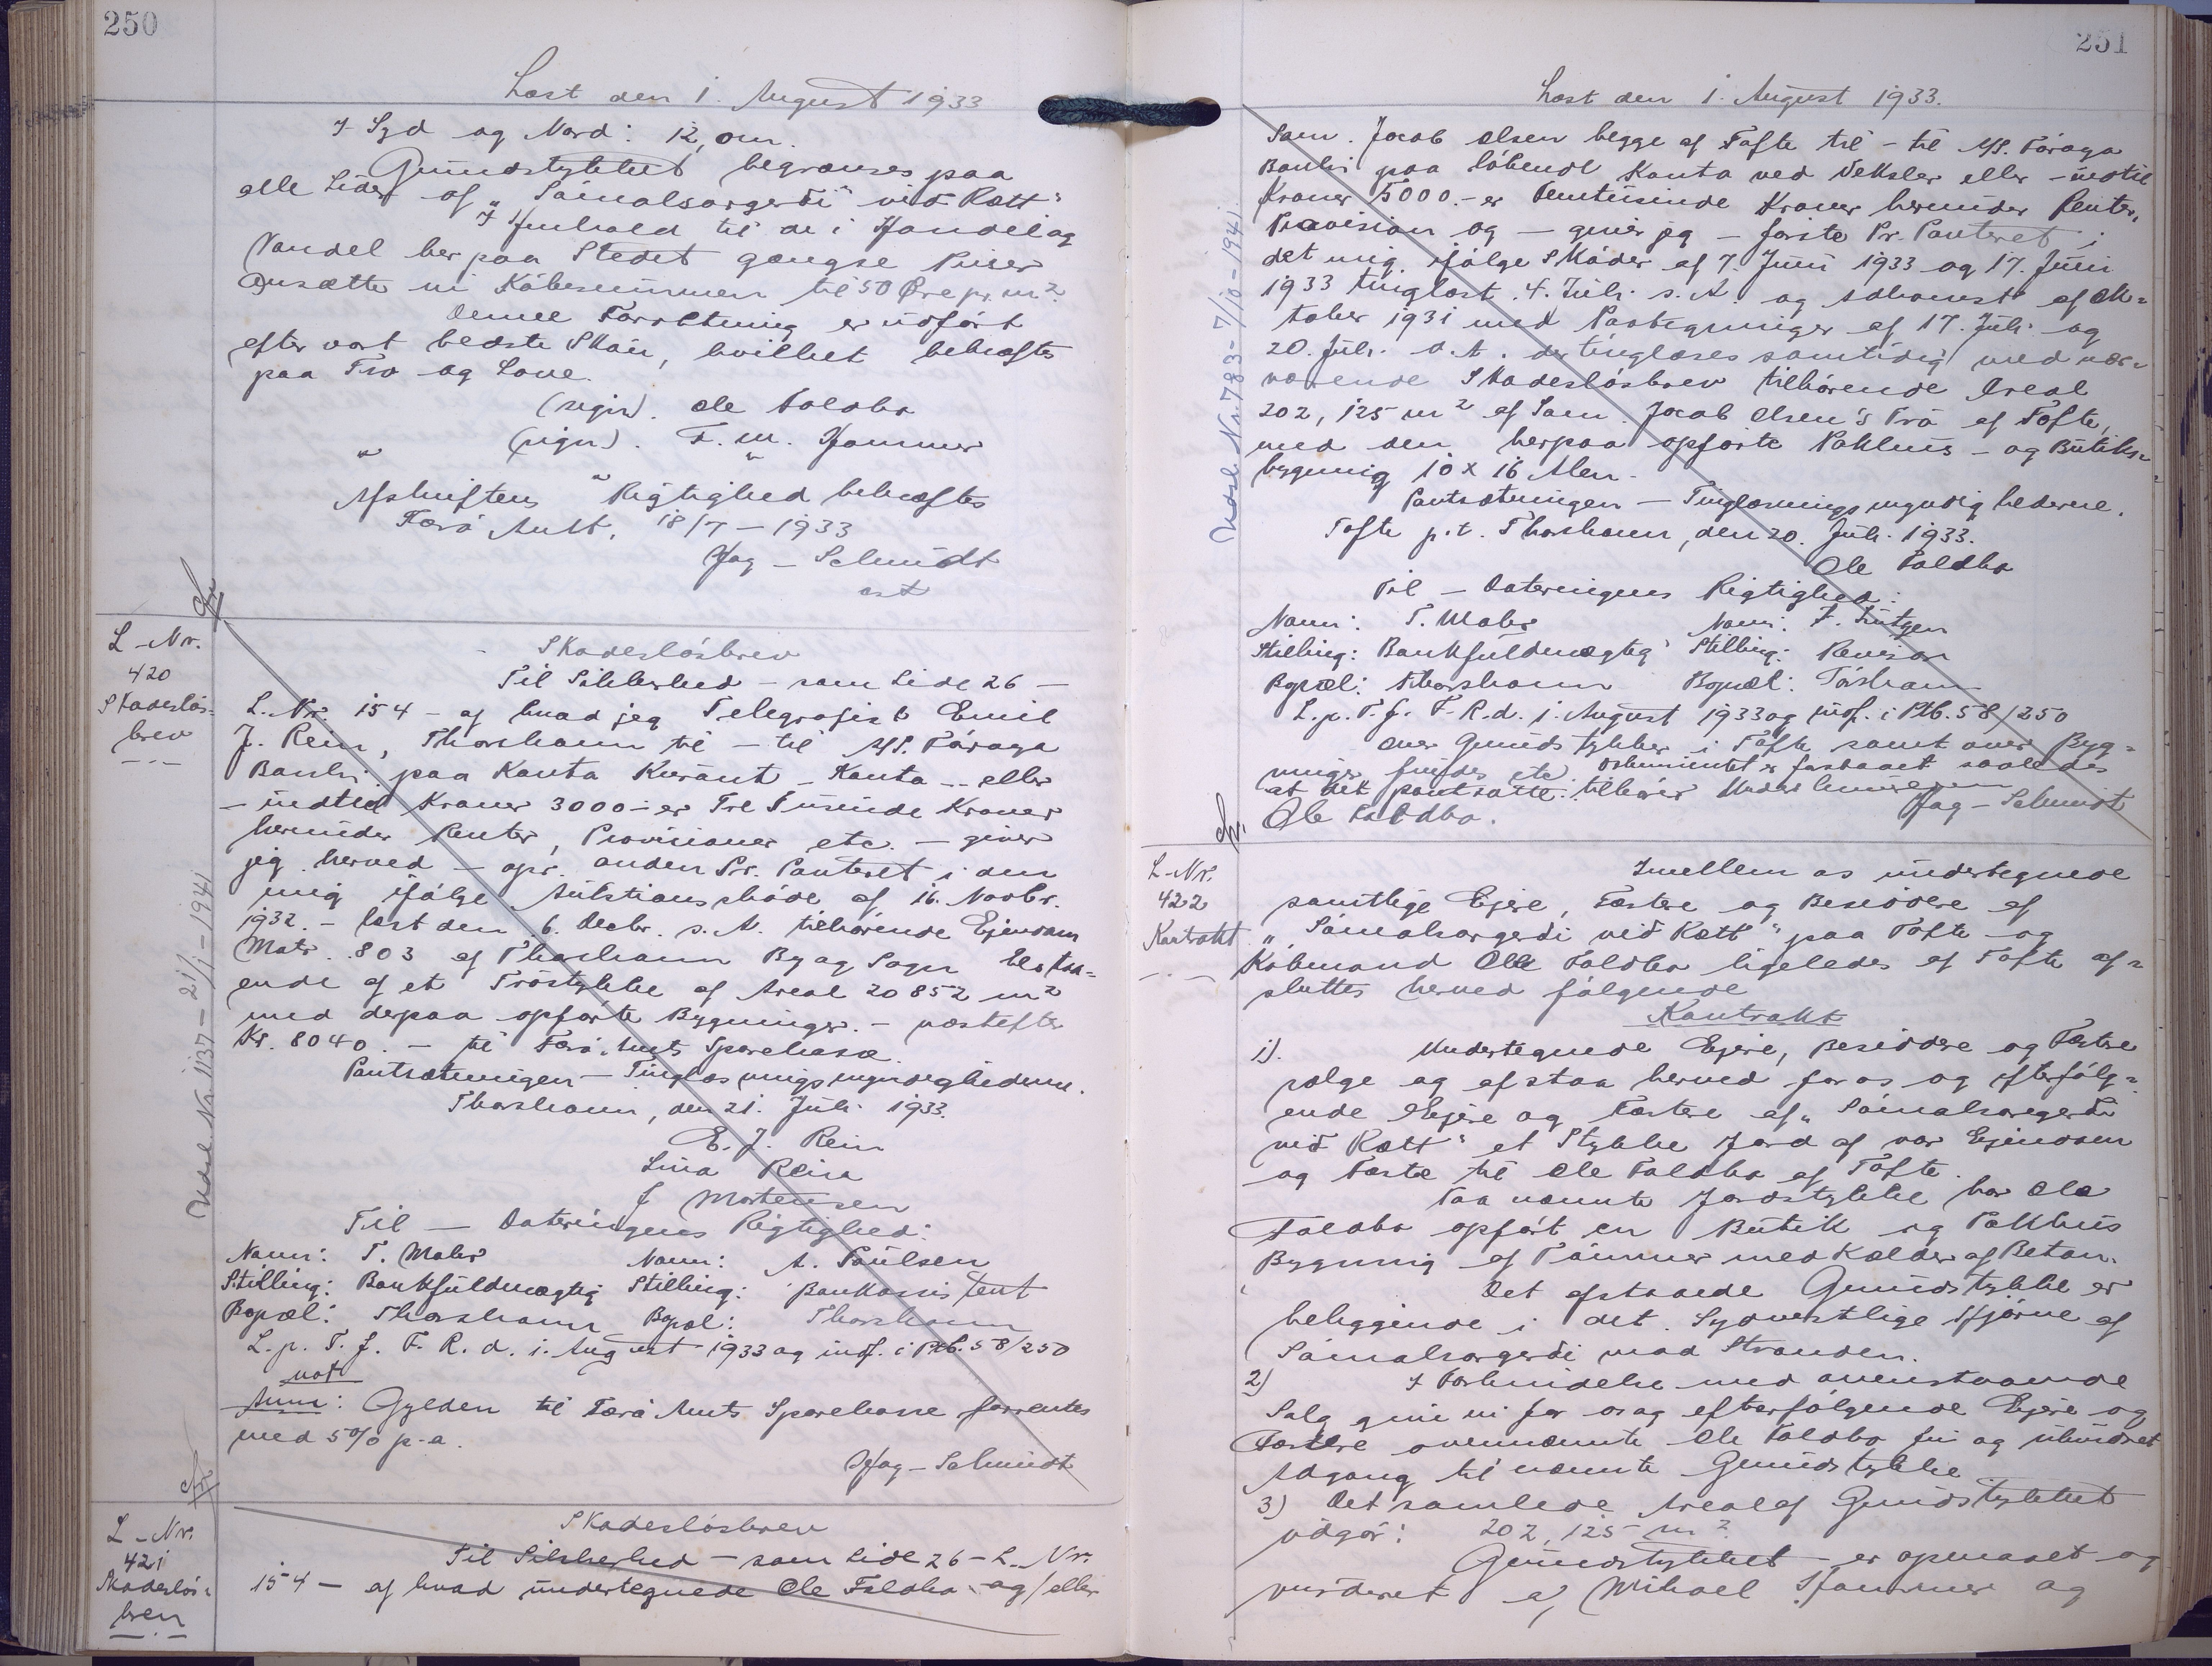 250
Læst den 1. August 1933
I Syd og Nord: 12,0m.
Grundstykket begrænses paa
alle Sider af „Sámalsargerði við Kætt“
I Henhold til de i Handel og
Vandel her paa Stedet gængse Priser
Ansætte vi Købesummen til 50 Øre pr. m²
Denne Forretning er udført
efter vort bedste Skøn, hvilket bekræftes
paa Tro og Love.
(sign). Ole Foldbo
(sign). F. M. Hammer
Afskriftens Rigtighed bekræftes
Færø Amt, 18/7 - 1933
Hag - Schmidt
cst
L-Nr.
420
Skadesløs-
brev
Skadesløsbrev
Til Sikkerhed - som Side 26 -
L. Nr. 154 - af hvad jeg Telegrafist Emil
J. Rein, Thorshavn til - til A/S. Føroya
Banki paa Konto Kurant - Konto -- eller
- indtil Kroner 3000 - er Tre Tusinde Kroner
herunder Renter, Provisioner etc. - giver
jeg herved - opr. anden Pr. Panteret i den
mig ifølge Auktionsskøde af 16. Novbr.
1932. - læst den 6. Decbr. s. A. tilhørende Ejendom
Matr. 803 af Thorshavn By og Sogn bestaa-
ende af et Trøstykke af Areal 20852 m²
med derpaa opførte Bygninger. - næstefter
Kr. 8040. - til Færø Amts Sparekasse.
Pantsætningen - Tinglæsningsmyndighederne.
Thorshavn, den 21. Juli 1933.
E. J. Rein
Lina Rein
J Mortensen
Til - Dateringens Rigtighed:
Navn: T. Mohr Navn: A. Poulsen
Stilling: Bankfuldmægtig Stilling: Bankassistent
Bopæl: Thorshavn Bopæl: Thorshavn
L. p. T. f. F. R. d. 1. August 1933 og indf. i Ptb. 58/250
not
Anm: Gælden til Færø Amts Sparekasse forrentes
med 5% p.a.
Hag - Schmidt
Udsl. No. 1137 - 21/1 - 1941
L-Nr.
421
Skadesløs-
brev
Skadesløsbrev
Til Sikkerhed - som Side 26 - L. Nr.
154 - af hvad undertegnede Ole Foldbo og/eller
251
Læst den 1. August 1933.
Sam. Jacob Olsen begge af Tofte til - til A/S. Føroya
Banki paa løbende Konto ved Veksler eller - indtil
Kroner 5000.- er Femtusinde Kroner herunder Renter,
Provision og - giver jeg - første Pr. Panteret i
det mig ifølge Skøder af 7. Juni 1933 og 17. Juni
1933 tinglæst 4. Juli s. A. og Adkomst af Ok-
tober 1931 med Paategninger af 17. Juli og
20. Juli d. A. der tinglæses samtidig med nær-
værende Skadesløsbrev tilhørende Areal
202,125 m² af Sam. Jacob Olsen's Trø af Tofte,
med den herpaa opførte Pakhus - og Butiks-
bygning 10 x 16 Alen.
Pantsætningen - Tinglæsningsmyndighederne.
Tofte p.t. Thorshavn, den 20. Juli 1933.
Ole Foldbo
Til - Dateringens Rigtighed:
Navn: T. Mohr Navn: F. Lützen
Stilling: Bankfuldmægtig Stilling: Revisor
Bopæl: Thorshavn Bopæl: Tórshavn
L. p. T. f. F. R. d. 1. August 1933 og indf. i Ptb. 58/250
over Grundstykker i Tofte samt over Byg-
ninger findes etc. Dokumentet er forstaaet saaledes
at det pantsatte tilhører
Ole Foldbo.
Hag - Schmidt
Udsl. No. 783 - 7/10 - 1941
L-Nr.
422
Kontrakt
Imellem os undertegnede
samtlige Ejere, Fæstere og Besiddere af
„Sámalsargerði við Kætt“ paa Tofte og
Købmand Ole Foldbo ligeledes af Tofte af-
sluttes herved følgende
Kontrakt
1). Undertegnede Ejere, Besiddere og Fæstere
sælge og afstaa herved for os og efterfølg-
ende Ejere og Fæstere af „Sámalsargerði
við Kætt“ et Stykke Jord af vor Ejendom
og Fæste til Ole Foldbo af Tofte.
Paa nævnte Jordstykke har Ole
Foldbo opført en Butik og Pakhus
Bygning af Tømmer med Kælder af Beton.
Det afstaaede Grundstykke er
beliggende i det Sydvestlige Hjørne af
Sámalsargerði mod Stranden.
2) I Forbindelse med ovenstaaende
Salg give vi for os og efterfølgende Ejere og
Fæstere ovennævnte Ole Foldbo fri og uhindret
Adgang til nævnte Grundstykke
3) Det samlede Areal af Grundstykket
udgør: 202,125 m²
Grundstykket er opmaalt og
vurderet af Mikael Hammer og